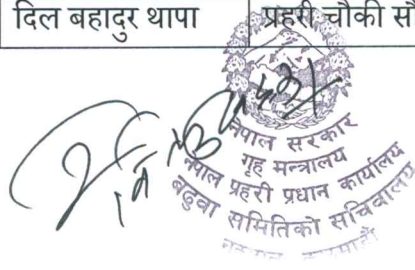 दिल बहादुर थापा
प्रहरी चौकी सौ
नेपाल सरकार
गृह मन्त्रालय
नेपाल प्रहरी प्रधान कार्यालय
बढुवा समितिको सचिवालय